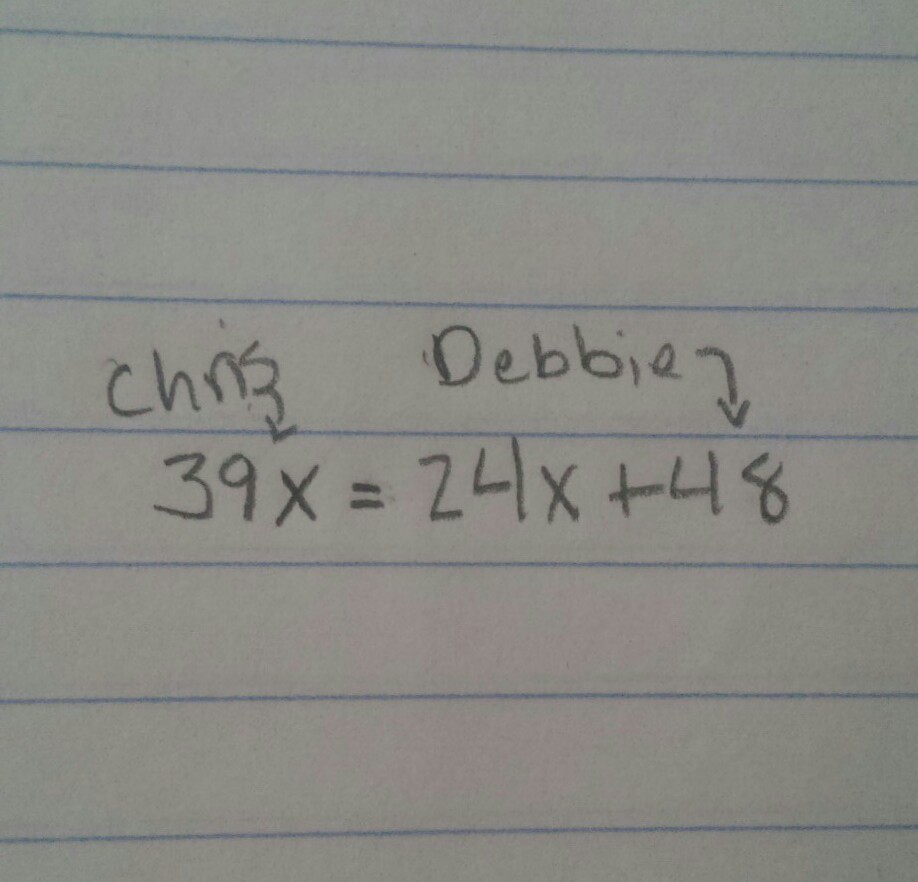 Chris Debbie
39x = 24x + 48